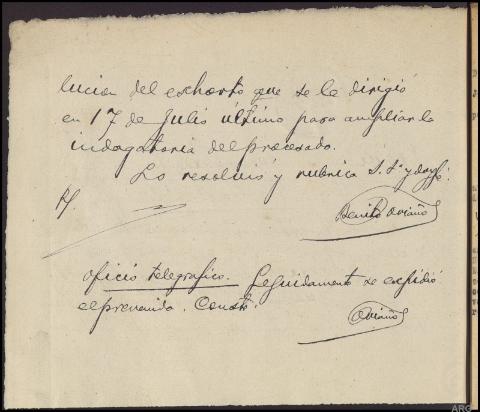 lucion del exhorto que se le dirigió
en 17 de Julio último para ampliar la
indagatoria del procesado.
Lo resolvió y rubrica S. Sª y doy fé.
Benito Aviaño
Oficio telegrafico. Seguidamente se expidió
el prevenido. Consta.
Aviaño
ARG